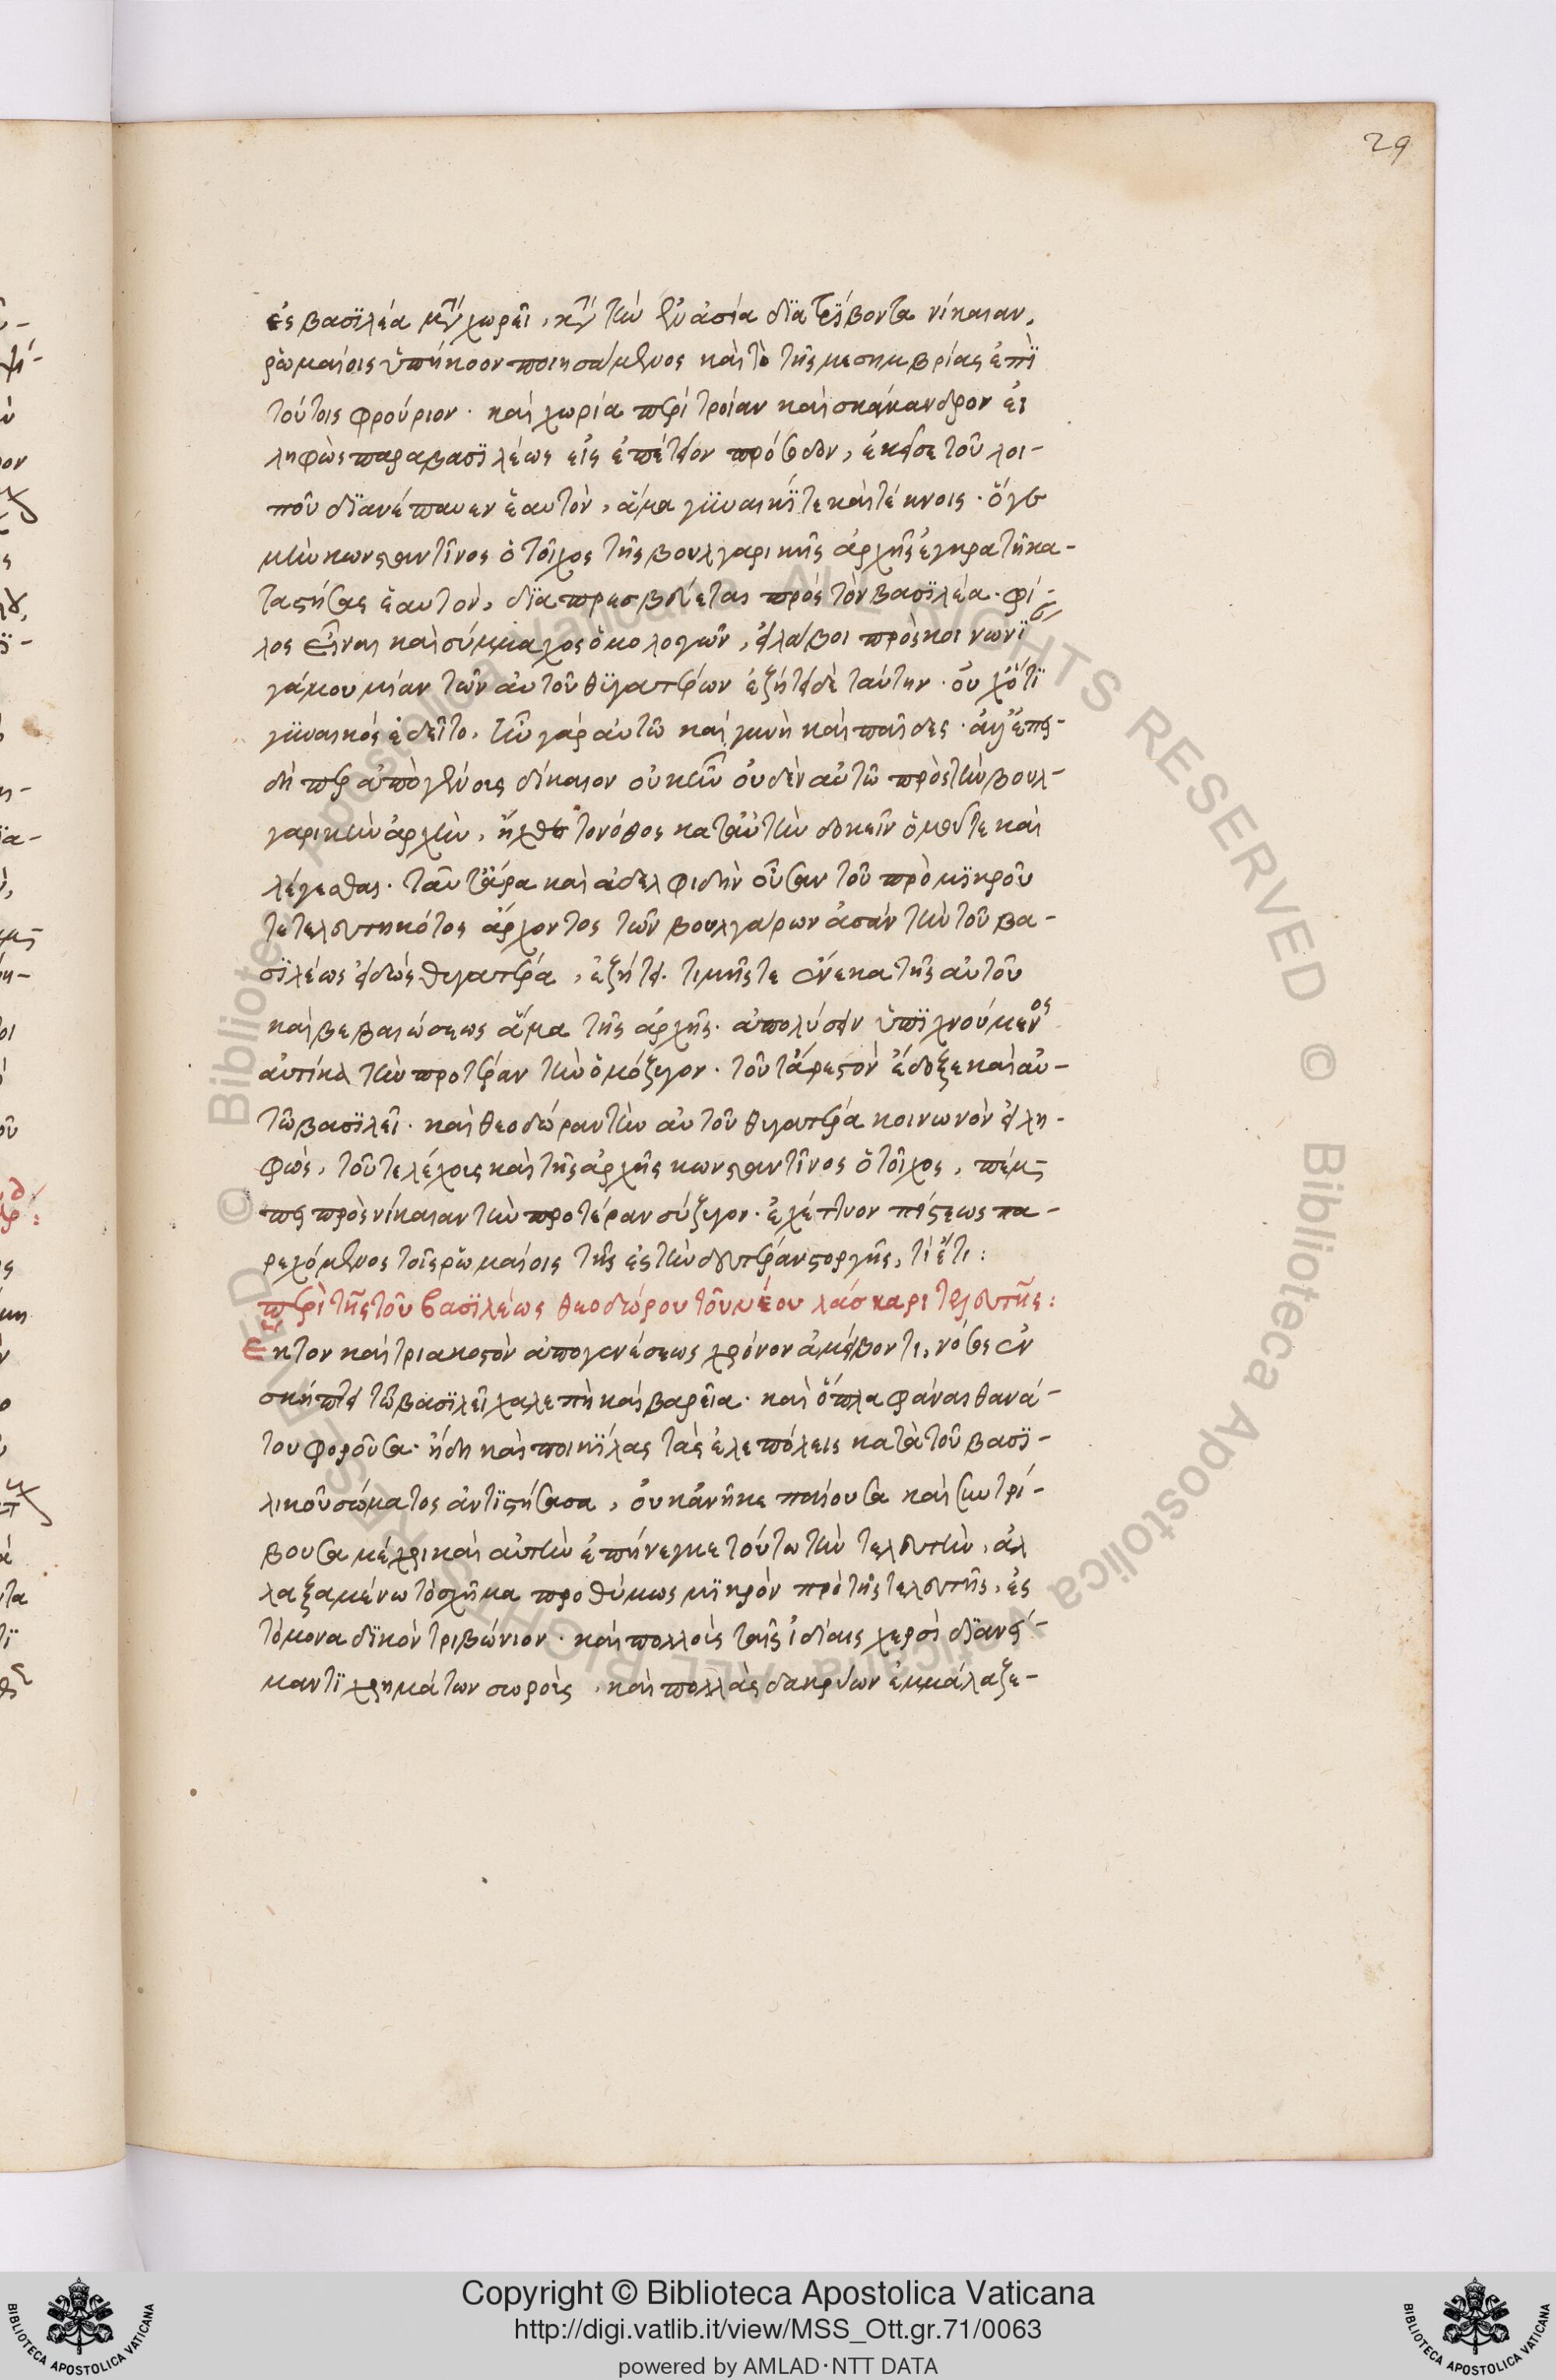 29
ἐς βασϊλέα μὲν χωρεῖ, κατὰ τὴν ἐν ἀσία δϊατρϊβοντα νίκαιαν,
ῥωμαίοις ὑπήκοον ποιησάμενος καὶ τὸ τῆς μεσημβρίας ἐπὶ
τούτοις φρούριον· καὶ χωρία περὶ τροίαν καὶ σκάμανδρον εἰ
ληφὼς παρα βασϊλέως εἰς ἐπέτειον πρόσοδον, ἐκεῖσε τοῦ λοι-
ποῦ δϊανέπαυεν ἑαυτὸν, ἅμα γϋναικΐ τε καὶ τέκνοις· ὅγε
μὴν κωνσταντῖνος ὁ τοῖχος τῆς βουλγαρικῆς ἀρχῆς ἐγκρατῆ κα-
ταστήσας ἑαυτὸν, δϊαπρεσβεύεται πρὸς τὸν βασϊλέα· φί-
λος εἶναι καὶ σύμμαχος ὁμολογῶν, εἰ λάβοι πρὸς κοινωνΐαν
γάμου μίαν τῶν αὐτοῦ θϋγατέρων ἐζήτει δὲ ταύτην· οὐχ ὅτϊ
γϋναικὸς ἐδεῖτο, ἦν γὰρ αὐτῶ καὶ γυνὴ καὶ παῖδες· ἀλλ' ἐπει-
δὴ περ ἀπὸ γένους δίκαιον οὐκ ἦν οὐδὲν αὐτῶ πρὸς τὴν βουλ-
γαρικὴν ἀρχὴν, ἤσχετο νόθος κατ' αὐτὴν δοκεῖν ὁμοῦ τε καὶ
λέγεσθαι· ταῦτ' ἄρα καὶ ἀδελφιδὴν οὖσαν τοῦ πρὸ μϊκροῦ
τετελευτηκότος ἄρχοντος τῶν βουλγάρων ἀσὰν τὴν τοῦ βα-
σϊλέως εἰδὼς θυγατέρα, ἐζήτει· τιμῆς τε ἕνεκα τῆς αὐτοῦ
καὶ βεβαιώσεως ἅμα τῆς ἀρχῆς· ἀπολύσειν ὑπϊχνούμενος
αὐτίκα τὴν προτέραν τὴν ὁμόζυγον· τοῦτ' ἀρεστὸν ἔδοξε καὶ αὐ-
τῶ βασϊλεῖ· καὶ θεοδώραν τὴν αὐτοῦ θυγατέρα κοινωνὸν εἰλη-
φὼς, τοῦ τε λέχους καὶ τῆς ἀρχῆς κωνσταντῖνος ὁ τοῖχος, πέμ-
πει πρὸς νίκαιαν τὴν προτέραν σύζυγον· ἐχέγγυον πίστεως πα-
ρεχόμενος τοῖς ῥωμαίοις τῆς ἐς τὴν δευτέραν στοργῆς, τὶ ἔτι:
περὶ τῆς τοῦ βασϊλέως θεοδώρου τοῦ νέου λάσκαρι τελευτῆς:
Εκτον καὶ τριακοστὸν ἀπογενέσεως χρόνον ἀμείβοντι, νόσος ἐν
σκήπτει τῶ βασϊλεῖ χαλεπὴ καὶ βαρεῖα· καὶ ὅπλα φάναι θανά-
του φοροῦσα· ἤδη καὶ ποικϊλας τὰς ἑλεπόλεις κατὰ τοῦ βασϊ-
λικοῦ σώματος ἀντϊστήσασα, οὐκ ἀνῆκε παίουσα καὶ συντρί-
βουσα μέχρι καὶ αὐτὴν ἐπήνεγκε τούτω τὴν τελευτὴν, ἀλ
λαξαμένω τὸ σχῆμα προθύμως μϊκρὸν πρὸ τῆς τελευτῆς, ἐς
τὸ μοναδϊκὸν τριβώνιον· καὶ πολλοὺς ταῖς ἰδίαις χερσὶ δϊανεί-
μαντϊ χρημάτων σωροὺς, καὶ πολλὰς δακρύων ἐμμάλαξε-
Copyright © Biblioteca Apostolica Vaticana
http://digi.vatlib.it/view/MSS_Ott.gr.71/0063
powered by AMLAD·NTT DATA